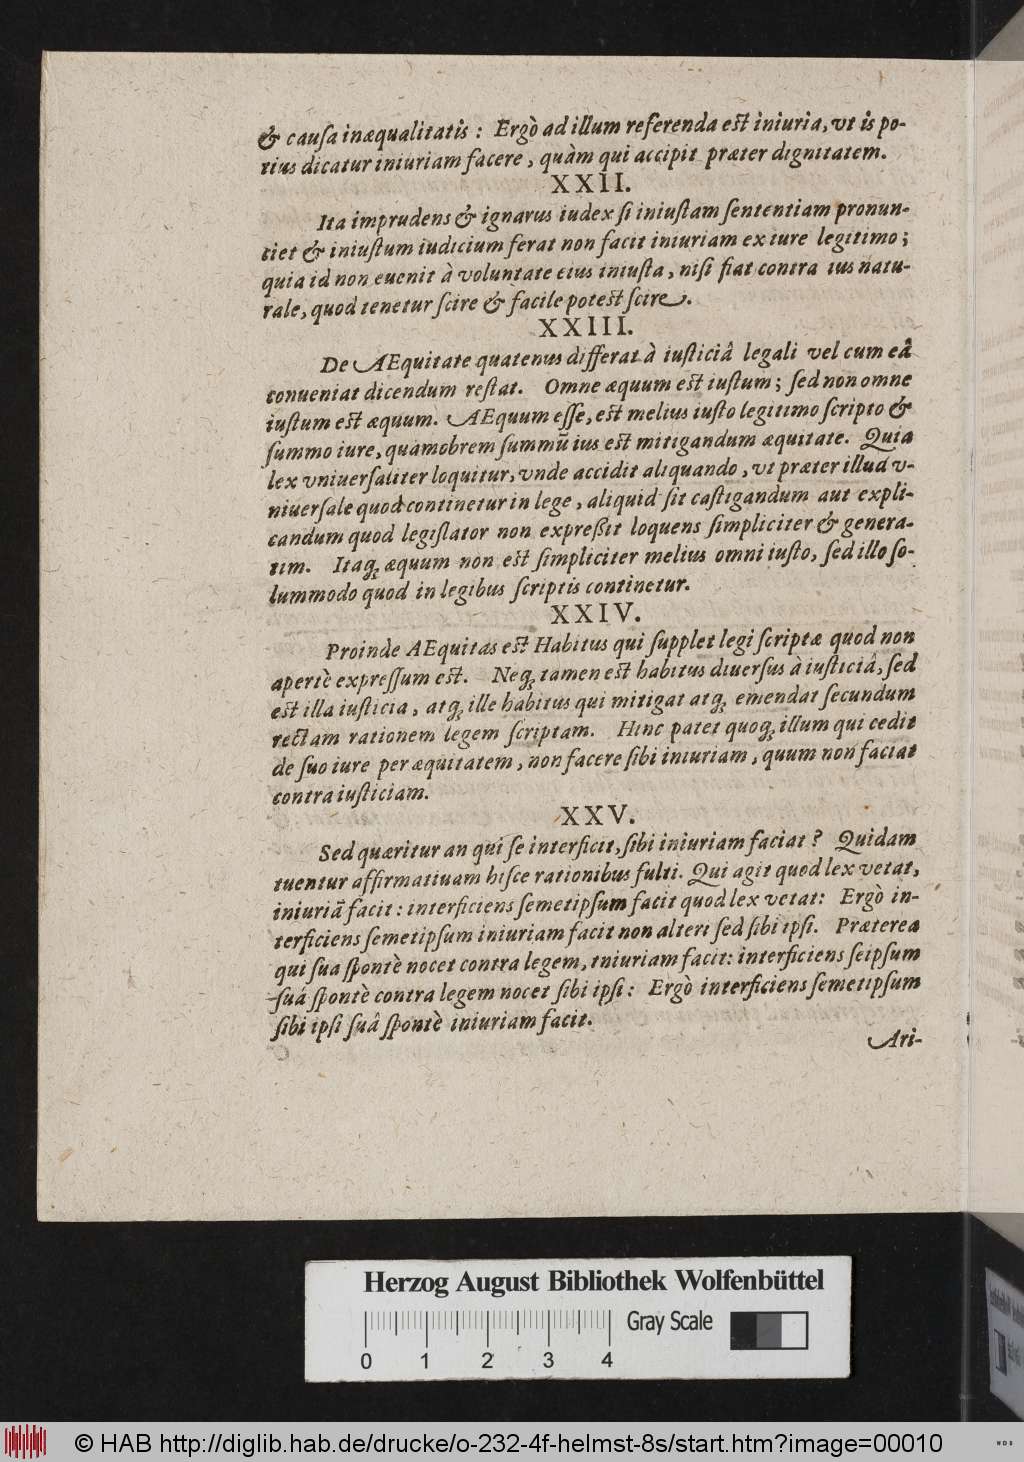 & cauſa inæqualitatis : Ergò ad illum referenda est iniuria, vt is po-
tius dicatur iniuriam facere, quàm qui accipit præter dignitatem.
XXII.
Ita imprudens & ignarus iudex ſi iniuſtam ſententiam pronun-
ciet & iniuſtum iudicium ferat non facit iniuriam ex iure legitimo;
quia id non euenit à voluntate eius iniuſta, niſi fiat contra ius natu-
rale, quod tenetur ſcire & facile potest ſcire.
XXIII.
De AEquitate quatenus differat à iuſticiâ legali vel cum eâ
conueniat dicendum reſtat. Omne æquum est iustum; ſed non omne
iustum est æquum. AEquum eſſe, est melius iuſto legitimo ſcripto &
ſummo iure, quamobrem ſummũ ius est mitigandum æquitate. Quia
lex vniuerſaliter loquitur, vnde accidit aliquando, vt præter illud v-
niuerſale quod continetur in lege, aliquid ſit caſtigandum aut expli-
candum quod legiſlator non expreßit loquens ſimpliciter & genera-
tim. Itaq; æquum non est ſimpliciter melius omni iuſto, ſed illo ſo-
lummodo quod in legibus ſcriptis continetur.
XXIV.
Proinde AEquitas est Habitus qui ſupplet legi ſcriptæ quod non
apertè expreſſum est. Neq; tamen est habitus diuerſus à iuſticiâ, ſed
est illa iuſticia, atq; ille habitus qui mitigat atq; emendat ſecundum
rectam rationem legem ſcriptam. Hinc patet quoq; illum qui cedit
de ſuo iure per æquitatem, non facere ſibi iniuriam, quum non faciat
contra iuſticiam.
XXV.
Sed quæritur an qui ſe interficit, ſibi iniuriam faciat? Quidam
tuentur affirmatiuam hiſce rationibus fulti. Qui agit quod lex vetat,
iniuriã facit: interficiens ſemetipſum facit quod lex vetat: Ergò in-
terficiens ſemetipſum iniuriam facit non alteri ſed ſibi ipſi. Præterea
qui ſua ſpontè nocet contra legem, iniuriam facit: interficiens ſeipſum
ſuâ ſpontè contra legem nocet ſibi ipſi: Ergò interficiens ſemetipſum
ſibi ipſi ſuâ ſpontè iniuriam facit.
Ari-
Herzog August Bibliothek Wolfenbüttel
Gray Scale
0 1 2 3 4
© HAB http://diglib.hab.de/drucke/o-232-4f-helmst-8s/start.htm?image=00010